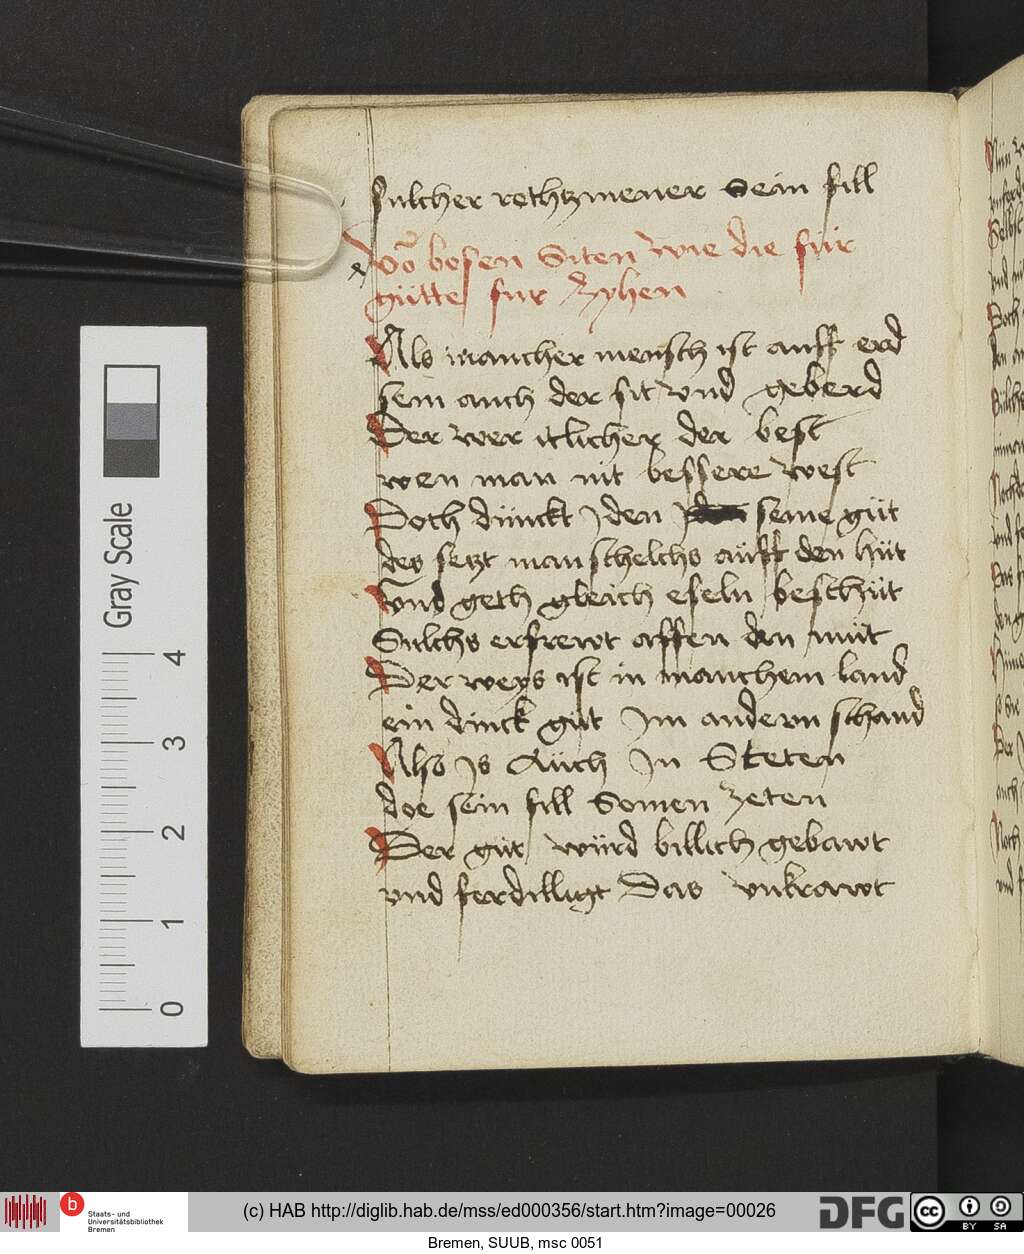 sulcher rethzmener sein fill
Võ bosen Siten wie die für
gütte für Zyhen
Als mancher mensch ist auff erd
sein auch der sit vnd geberd
Der wer itlicher der best
wen man nit bessere west
Doch dünckt jden seine güt
des setzt man schelchs aüff den hüt
Vnd geth gleich eseln beschüt
Sulchs erfrewt affen den müt
Der weys ist in manchem land
ein dinck güt Im andern schand
Also Is Aüch In Steten
doe sein fill Somen zeten
Der güt würd billich gebawt
vnd ferdilligt Das vnkrawt
Gray Scale
4
3
2
1
0
b
Staats- und
Universitätsbibliothek
Bremen
(c) HAB http://diglib.hab.de/mss/ed000356/start.htm?image=00026
DFG
cc
BY SA
Bremen, SUUB, msc 0051